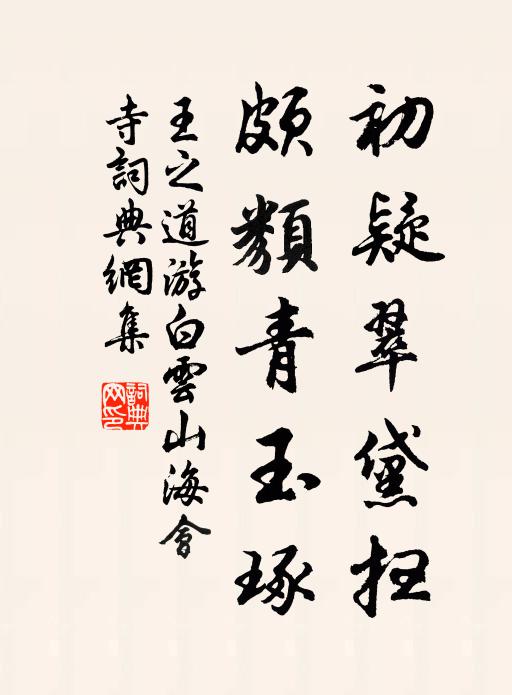 初疑翠黛扫
頗類青玉琢
王之道游白雲山海會
寺詞典網集
詞典
网印